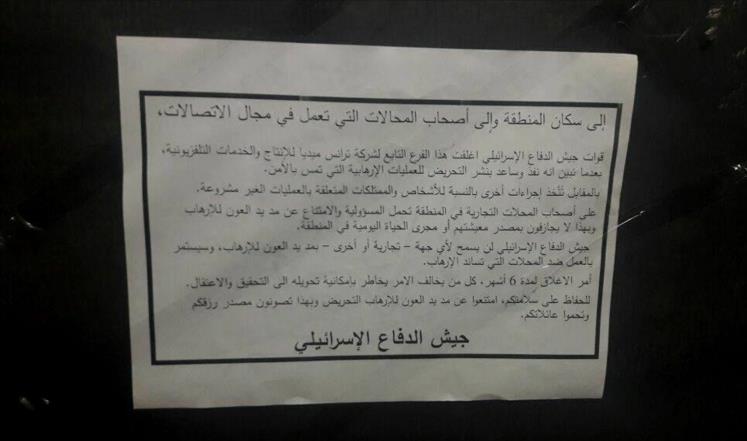 إلى سكان المنطقة وإلى أصحاب المحالات التي تعمل في مجال الاتصالات،
قوات جيش الدفاع الإسرائيلي اغلقت هذا الفرع التابع لشركة ترانس ميديا للإنتاج والخدمات التلفزيونية،
بعدما تبين انه نفذ وساعد بنشر التحريض للعمليات الإرهابية التي تمس بالأمن.
بالمقابل تُتَّخذ إجراءات أخرى بالنسبة للأشخاص والممتلكات المتعلقة بالعمليات الغير مشروعة.
على أصحاب المحلات التجارية في المنطقة تحمل المسؤولية والامتناع عن مد يد العون للإرهاب
وبهذا لا يجازفون بمصدر معيشتهم أو مجرى الحياة اليومية في المنطقة.
جيش الدفاع الإسرائيلي لن يسمح لأي جهة – تجارية أو أخرى – بمد يد العون للإرهاب، وسيستمر
بالعمل ضد المحلات التي تساند الإرهاب.
أمر الاغلاق لمدة 6 أشهر، كل من يخالف الامر يخاطر بإمكانية تحويله الى التحقيق والاعتقال.
للحفاظ على سلامتكم، امتنعوا عن مد يد العون للإرهاب التحريض وبهذا تصونون مصدر رزقكم
وتحموا عائلاتكم.
جيش الدفاع الإسرائيلي